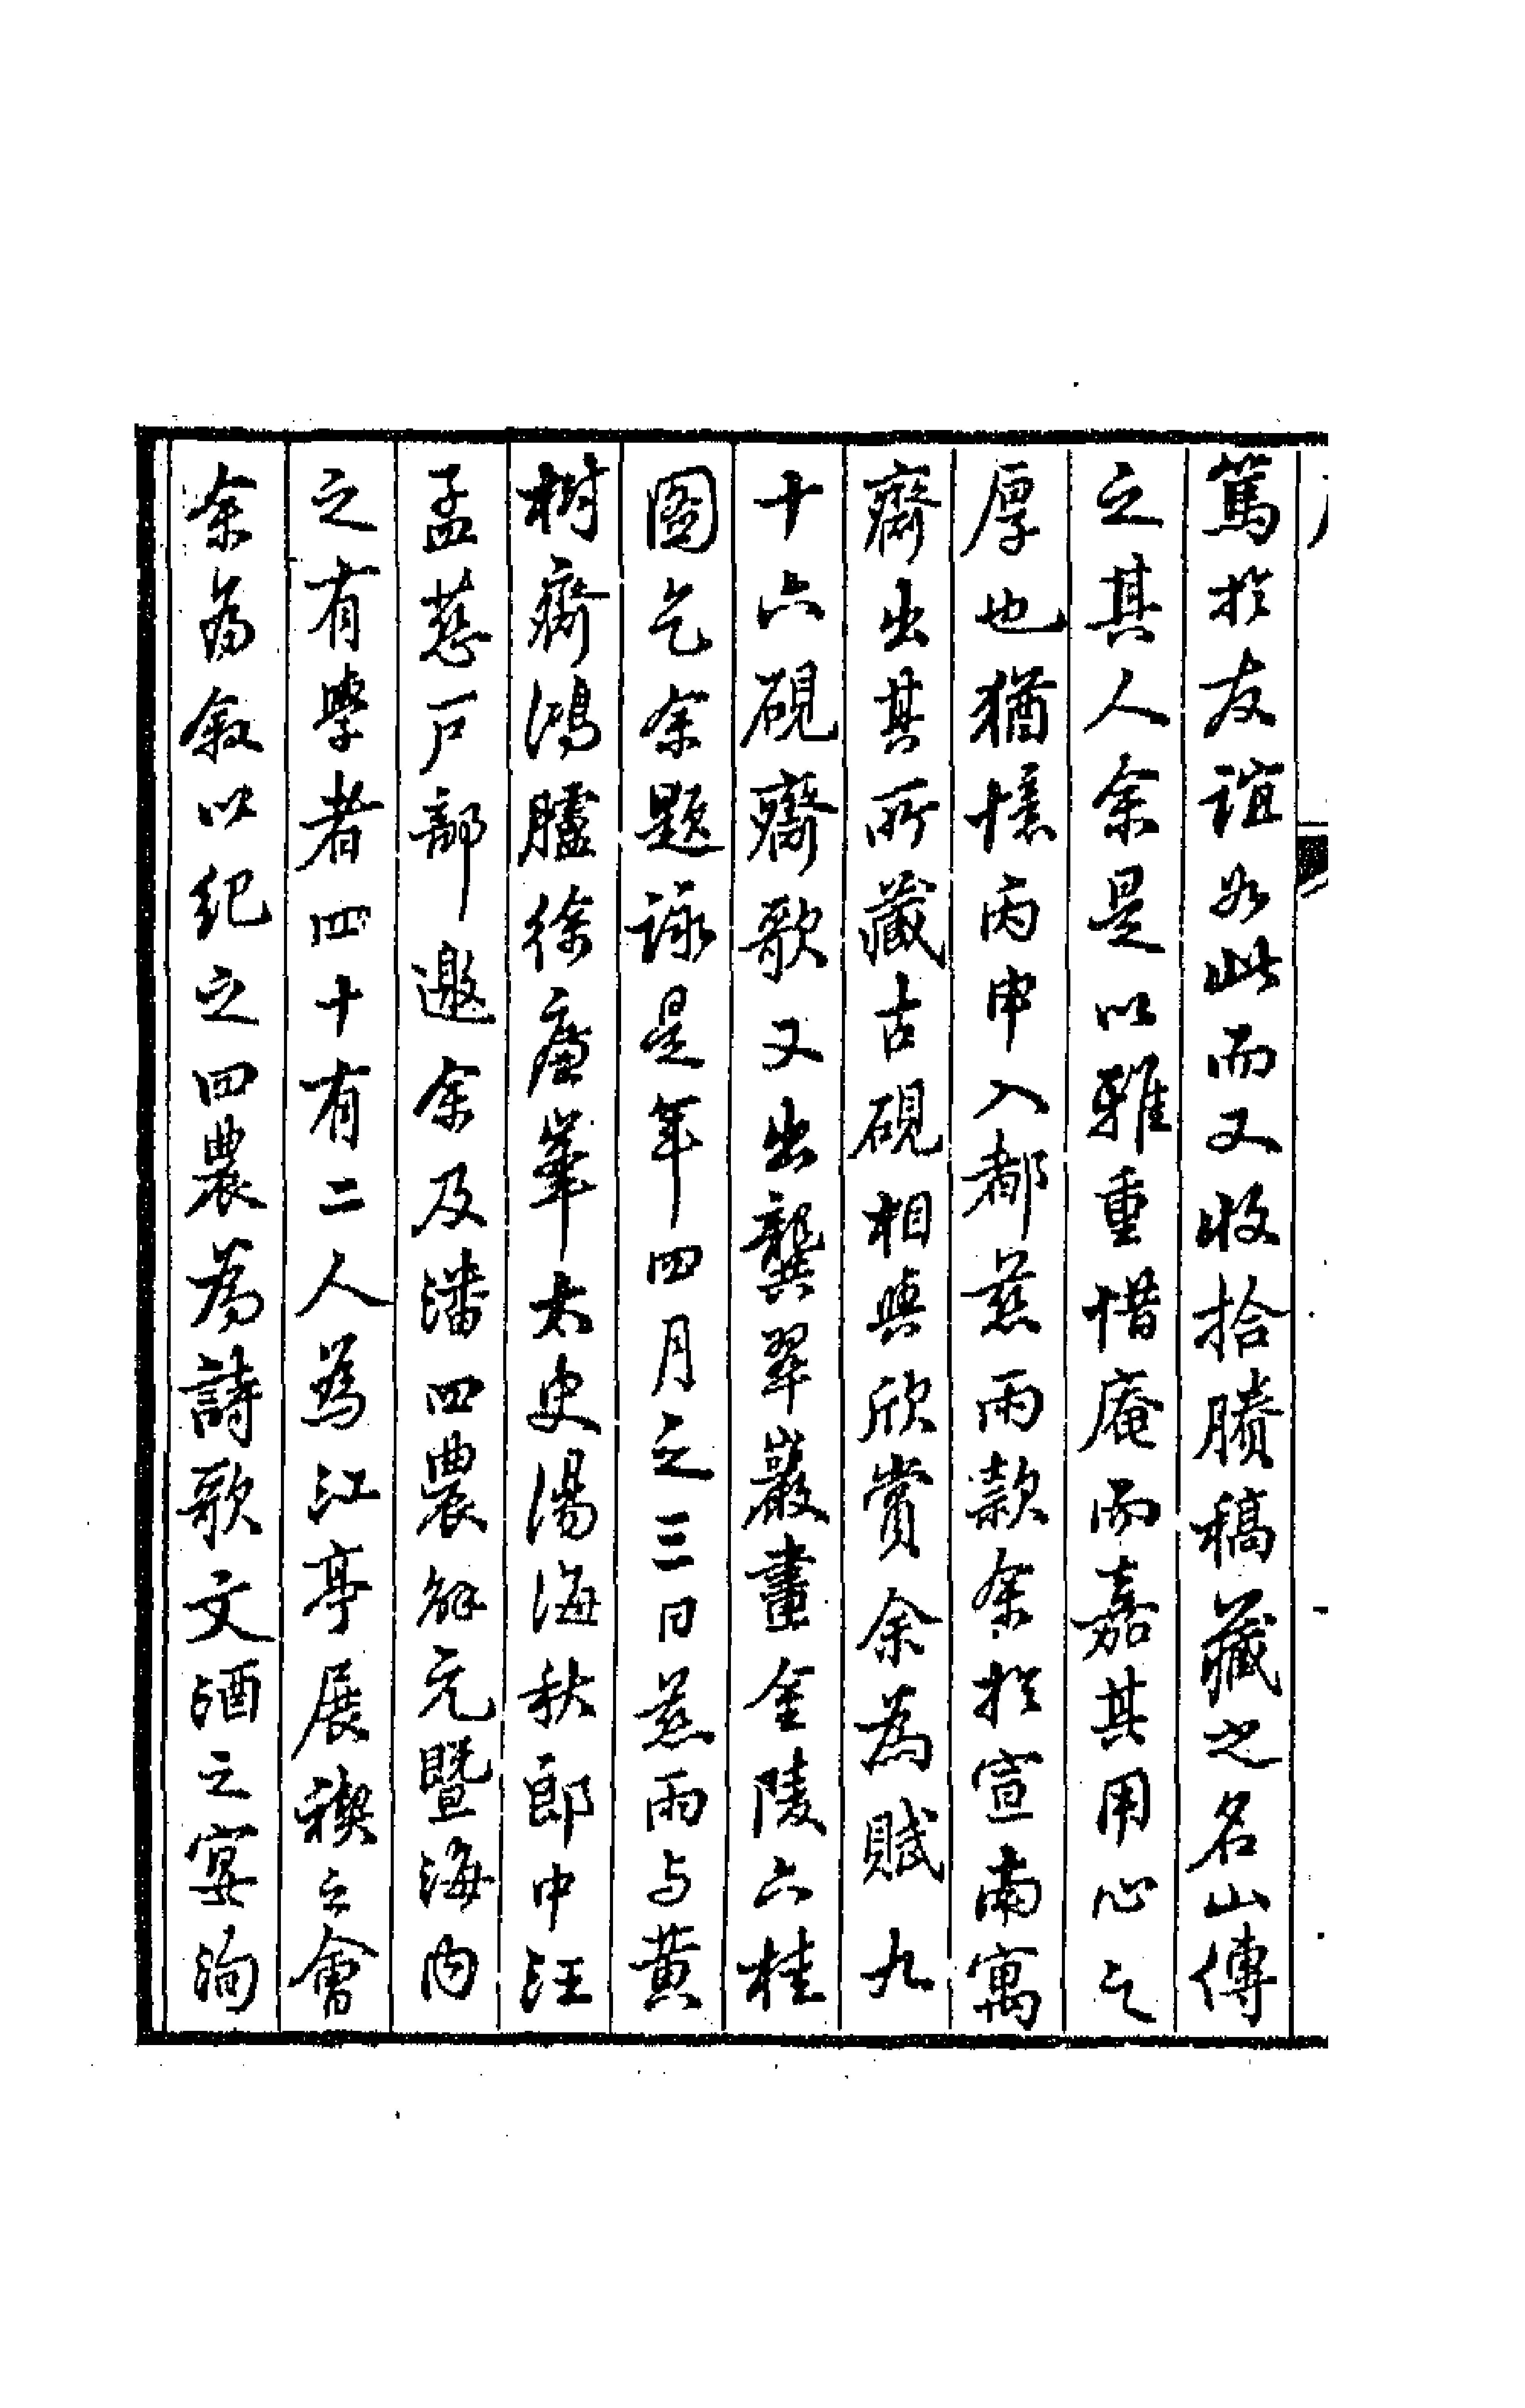 篤於友誼如此而又收拾賸稿藏之名山傳
之其人余是以雅重惜庵而嘉其用心之
厚也猶憶丙申入都慈雨款余於宣南寓
齋出其所藏古硯相與欣賞余為賦九
十六硯齋歌又出龔翠巖畫金陵六桂
圖乞余題詠是年四月之三日慈雨与黄
樹齋鴻臚徐廉峯太史湯海秋郎中汪
孟慈戸部邀余及潘四農解元暨海内
之有學者四十有二人為江亭展禊之會
余為敘以紀之四農為詩歌文酒之宴洵